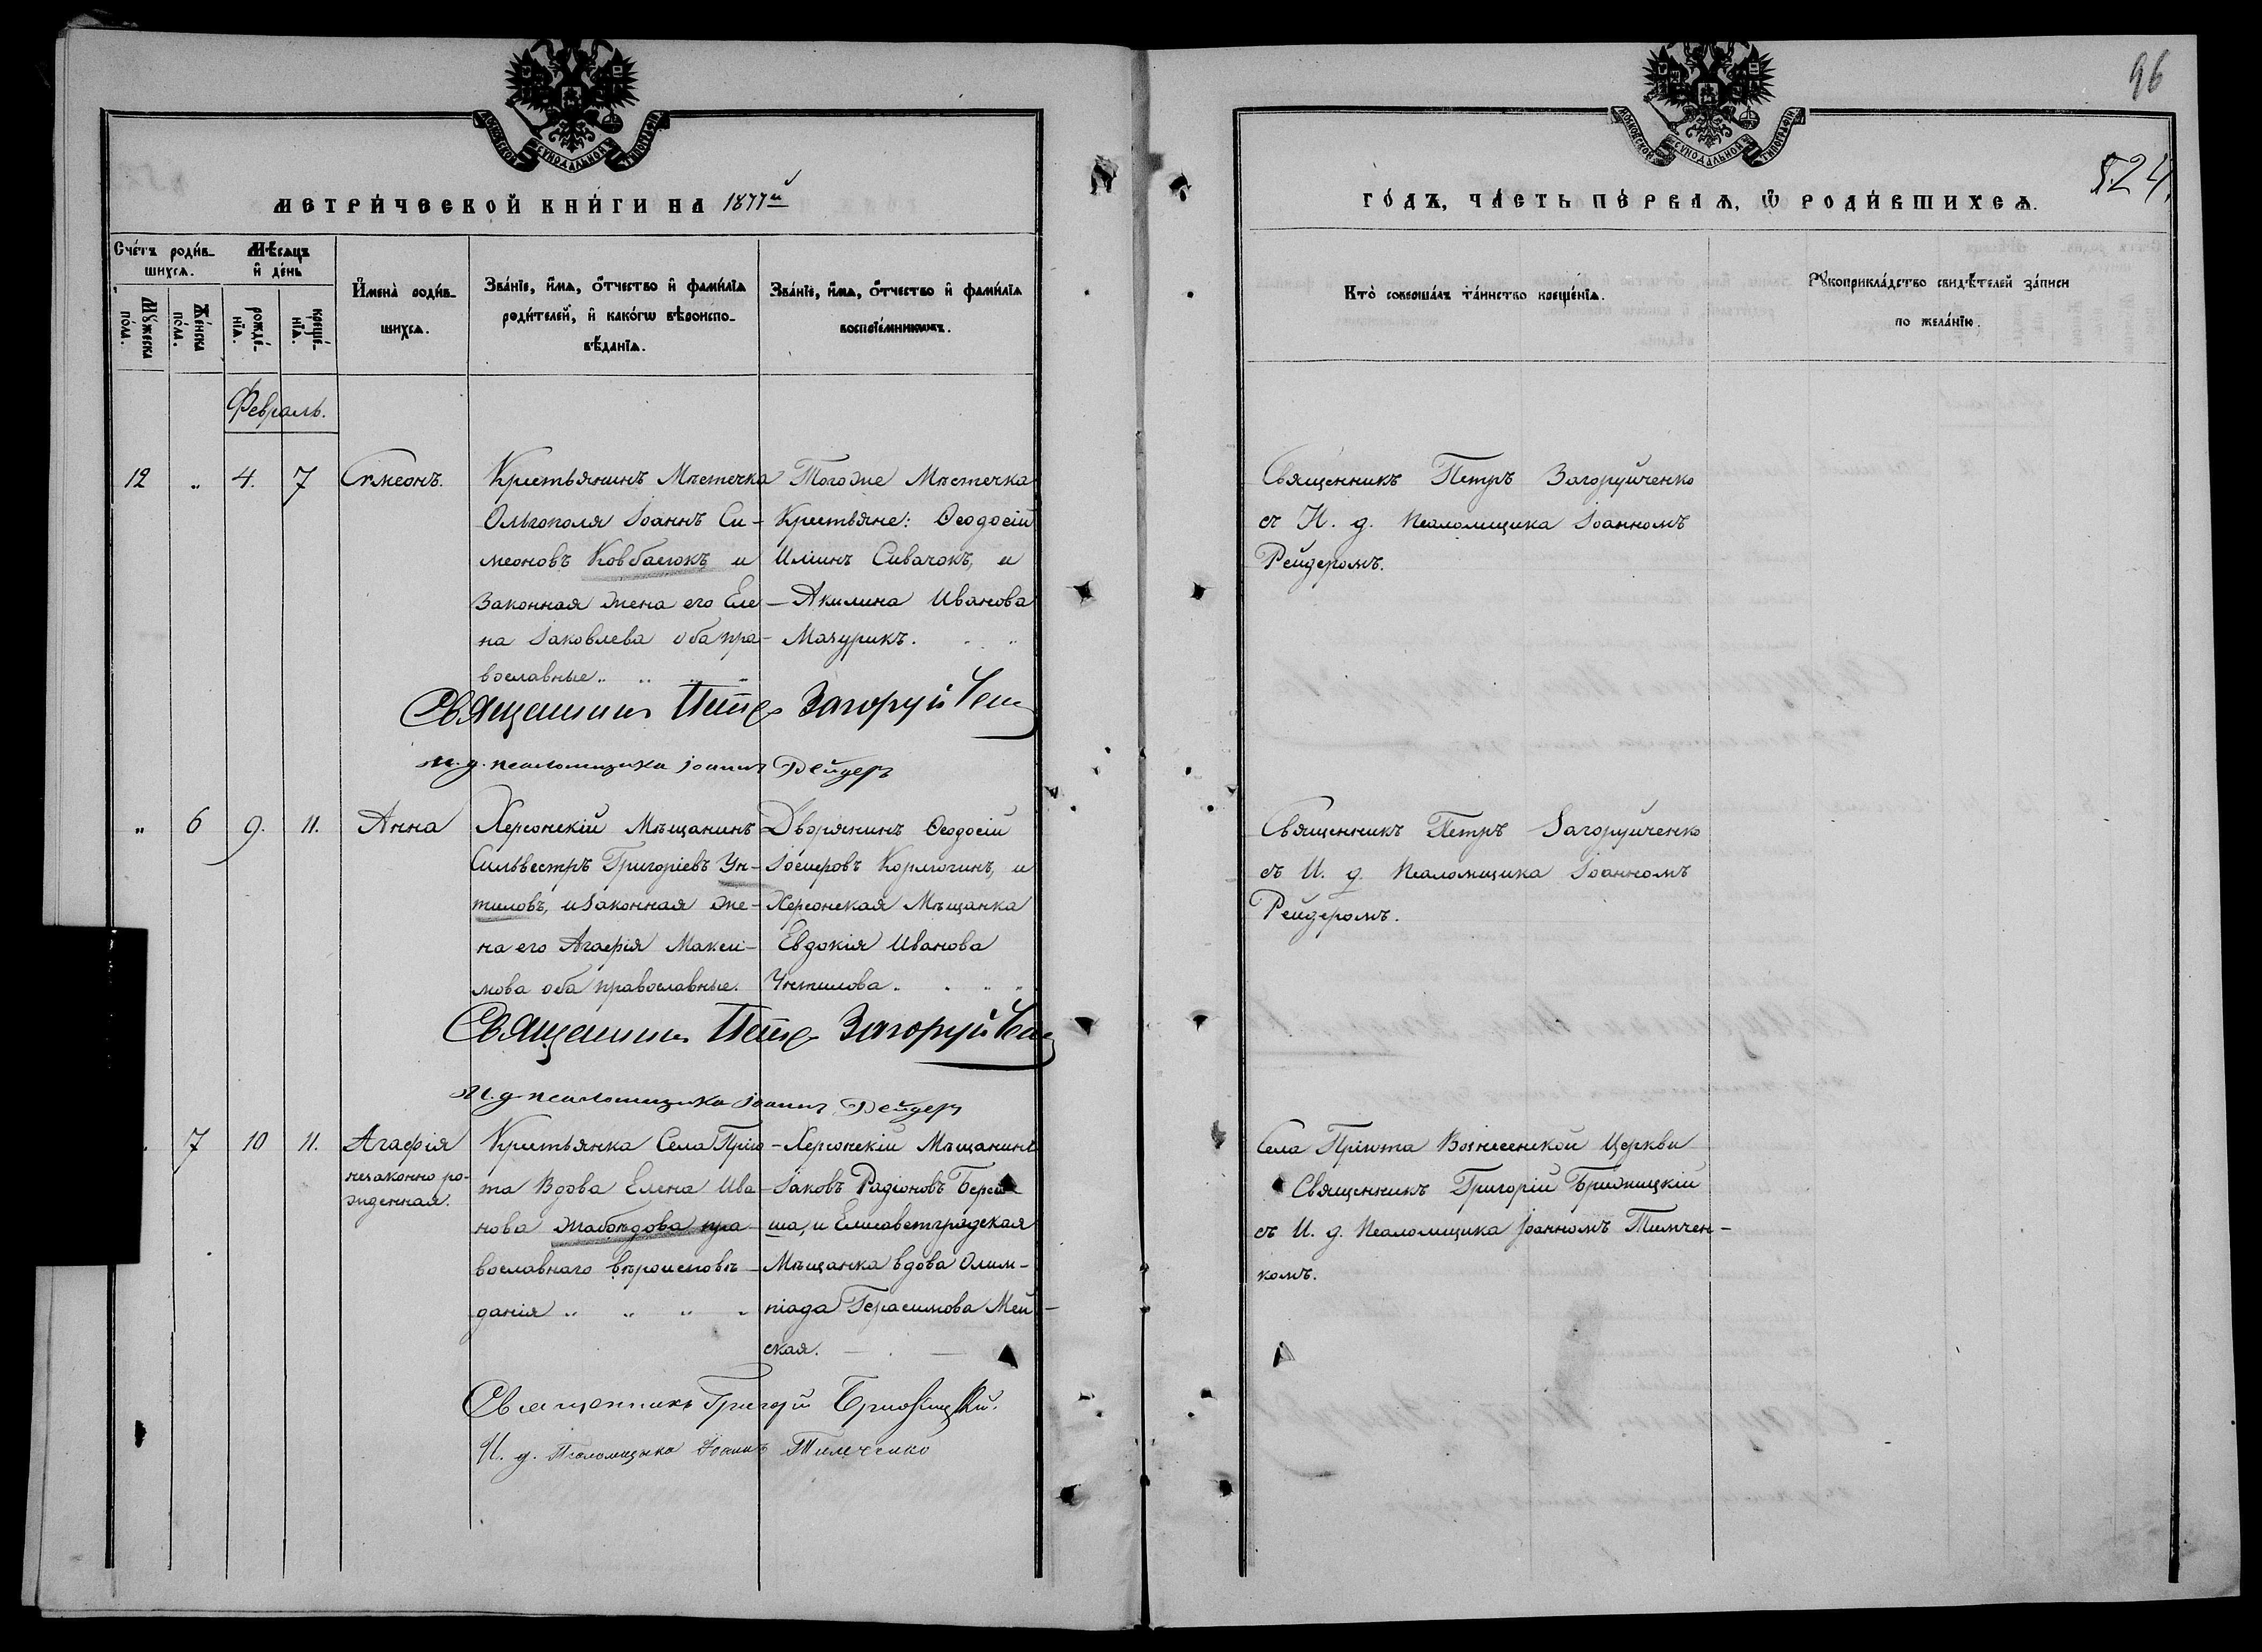 96
524
МОСКОВСКОЙ СѴНОДАЛЬНОЙ ТИПОГРАФІИ
МОСКОВСКОЙ СѴНОДАЛЬНОЙ ТИПОГРАФІИ
МЕТРИ́ЧЕСКОЙ КНИ́ГИ НА 1877й
ГО́ДЪ, ЧА́СТЬ ПЕ́РВАѦ, Ѿ РОДИ́ВШИХСѦ.
Сче́тъ роди́в-
шихсѧ.
Мꙋ́жеска
по́ла.
Же́нска
по́ла.
Мѣ́сѧцъ
и҆ де́нь
рожде́-
нїѧ.
креще́-
нїѧ.
И҆мена̀ роди́в-
шихсѧ.
Зва́нїе, и҆́мѧ, ѻ҆́тчество и҆ фами́лїѧ
роди́телей, и҆ како́гѡ вѣроиспо-
вѣ́данїѧ.
Зва́нїе, и҆́мѧ, ѻ҆́тчество и҆ фами́лїѧ
воспрїе́мникѡвъ.
Кто̀ соверша́лъ та́инство креще́нїѧ.
Рꙋкоприкла́дство свидѣ́телей за́писи
по жела́нїю.
Февраль.
12 " 4. 7 Сѵмеонъ.
Крестьянинъ Мѣстечка
Ольгополя Іоаннъ Си-
меоновъ Ковбасюкъ и
законная жена его Еле-
на Іаковлева оба пра-
вославные.
Тогоже Мѣстечка
Крестьяне: Ѳеодосій
Ильинъ Сивачокъ, и
Акилина Иванова
Мазурикъ.
Священникъ Петръ Загоруйченко
съ И. д. Псаломщика Іоанномъ
Рейдеромъ.
Священникъ Петръ Загоруйченко
И. д. псаломщика Іоаннъ Рейдеръ
" 6 9. 11. Анна
Херсонскій Мѣщанинъ
Сильвестръ Григоріевъ Ун-
тиловъ, и законная же-
на его Агафія Макси-
мова оба православные.
Дворянинъ Ѳеодосій
Іосифовъ Кормогинъ, и
Херсонская Мѣщанка
Евдокія Иванова
Унтилова.
Священникъ Петръ Загоруйченко
съ И. д. Псаломщика Іоанномъ
Рейдеромъ.
Священникъ Петръ Загоруйченко
И. д. псаломщика Іоаннъ Рейдеръ
7 10 11. Агафія
незаконно ро-
жденная.
Крестьянка Села Прію-
та Вдова Елена Ива-
нова Жабѣдова пра-
вославнаго вѣроисповѣ-
данія
Херсонскій Мѣщанинъ
Іаковъ Радіоновъ
ша, и Елисаветградская
Мѣщанка вдова Олим-
піада Герасимова Мей-
ская.
Села Пріюта Вознесенской Церкви
Священникъ Григорій Брижицкій
съ И. д. Псаломщика Іоанномъ Тимчен-
комъ.
Священникъ Григорій Брижицкій.
И. д. Псаломщика Іоаннъ Тимченко